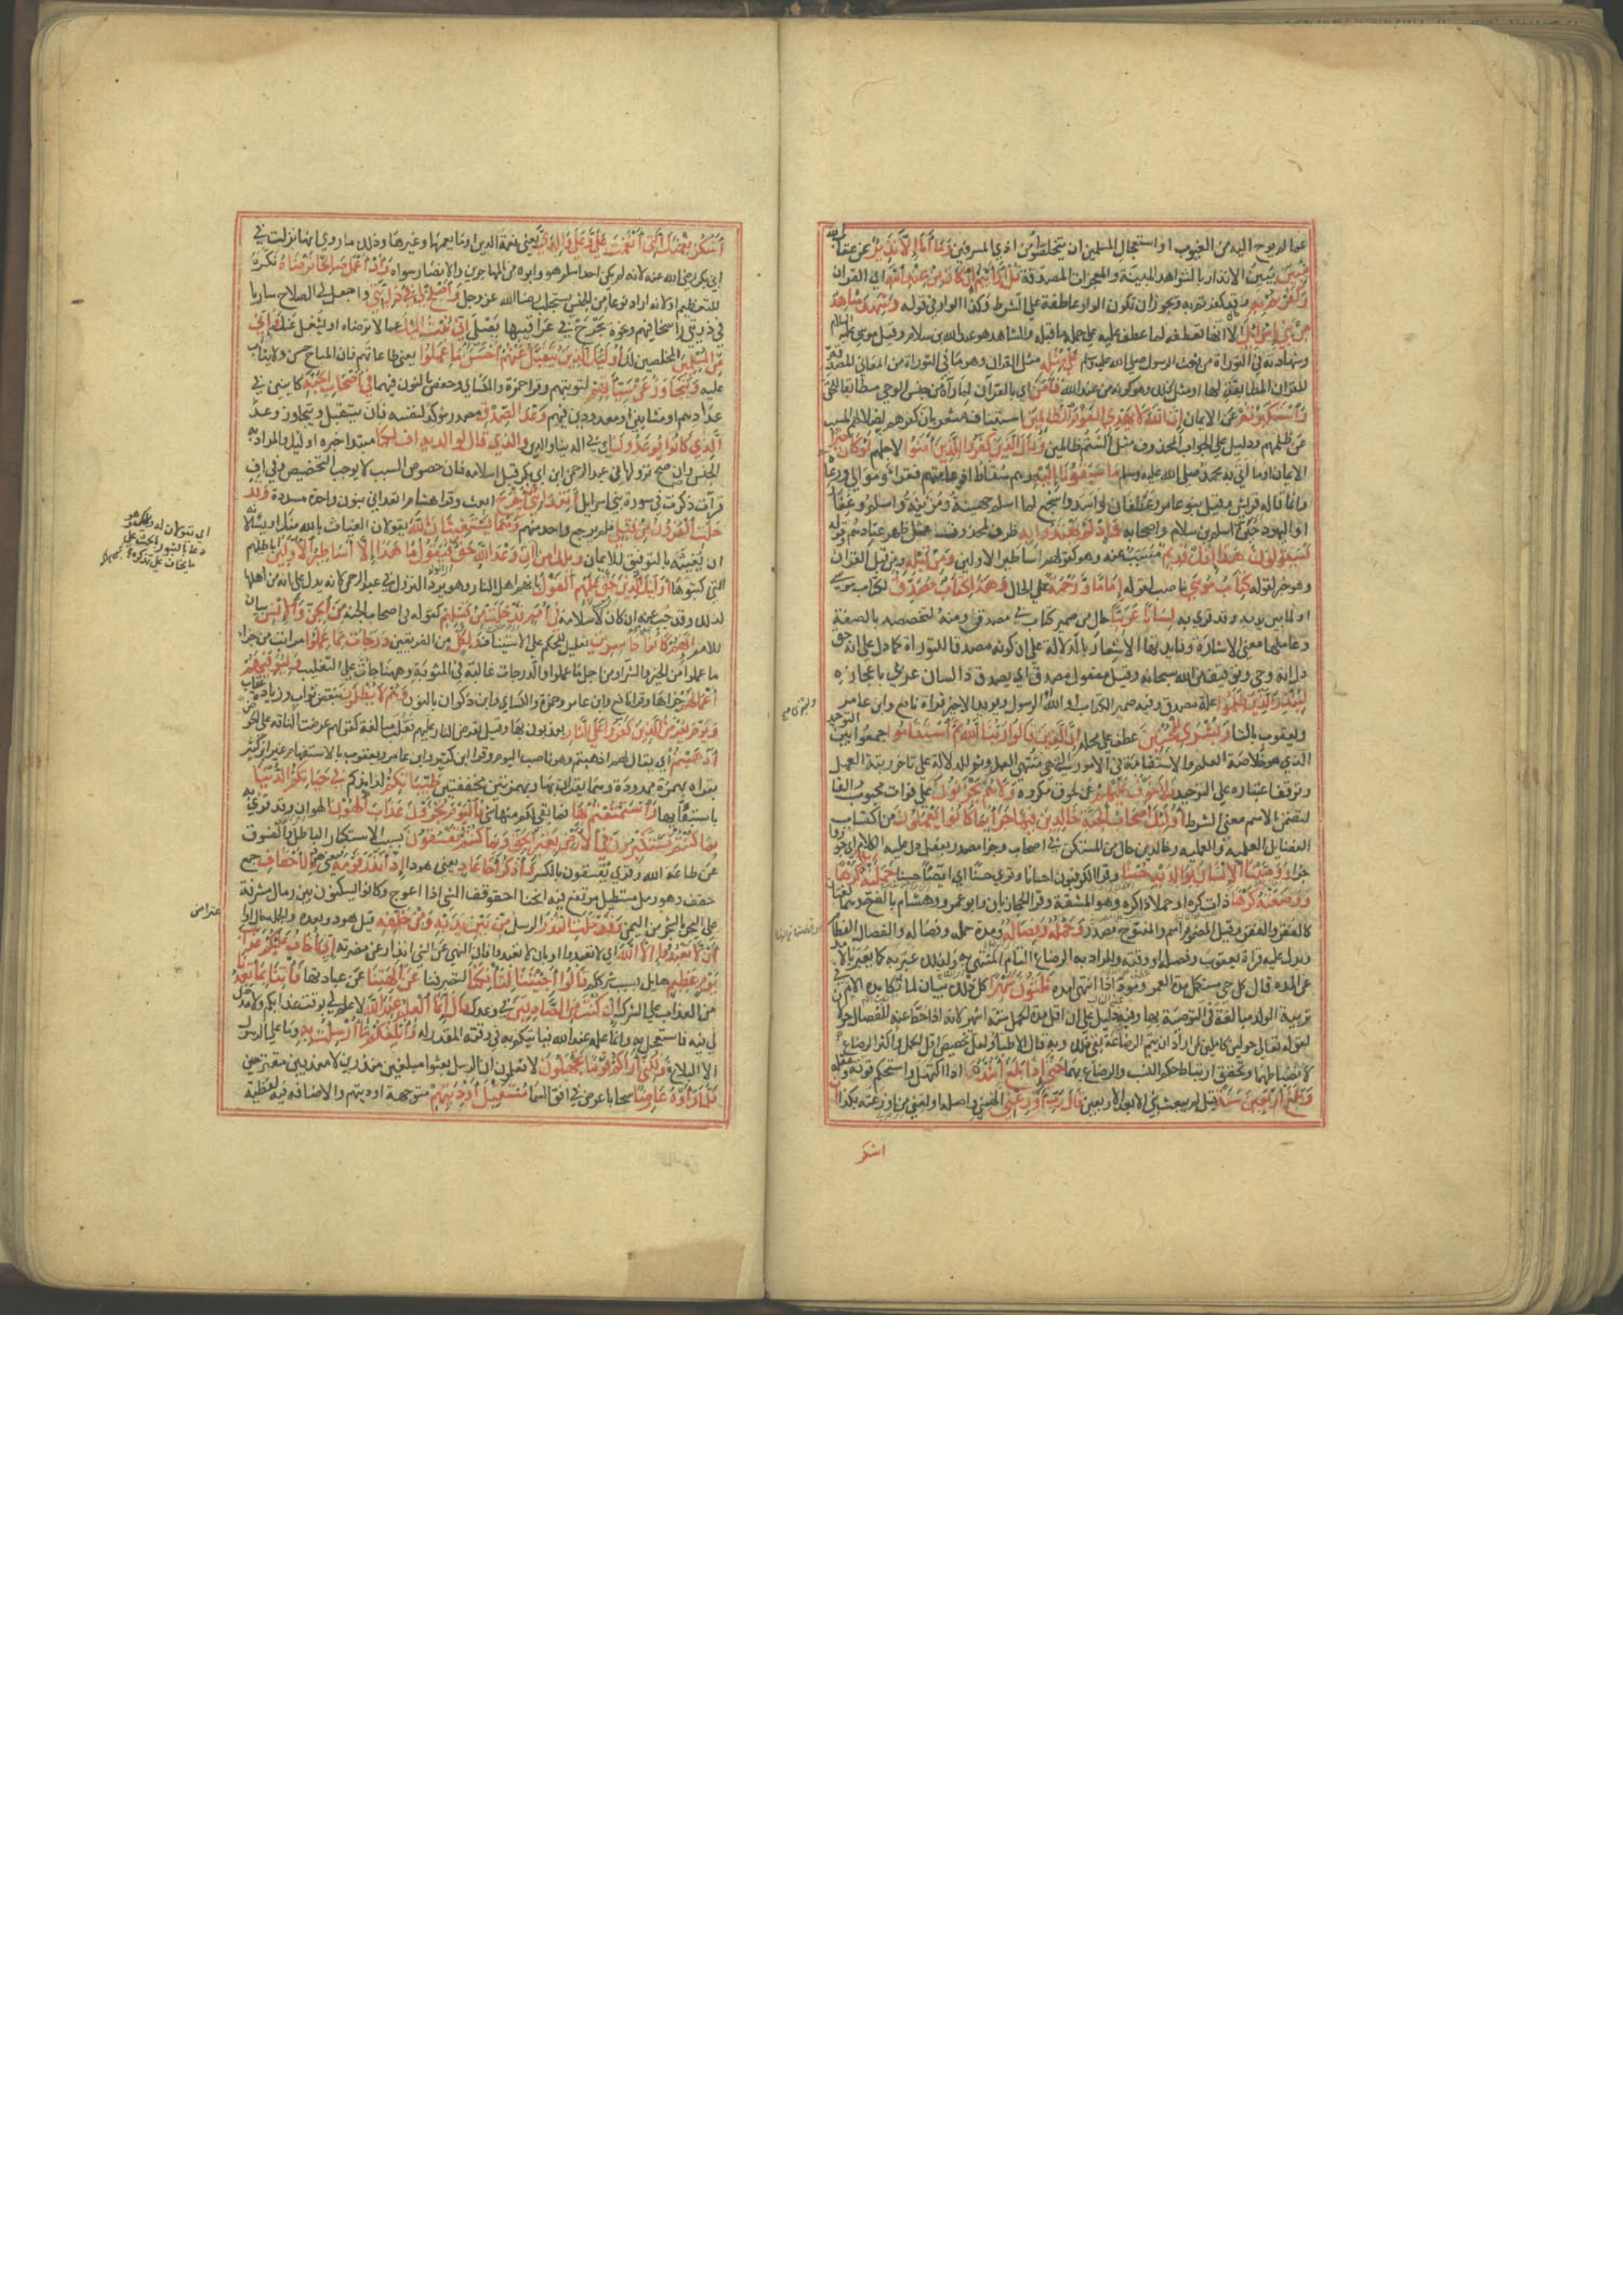 عما لم يوح اليه من الغيوب او استعجال المسلمين ان يتخلصوا من اذي المشركين وَمَا أَنَا إِلَّا نَذِيرٌ عن عقاب الله
مُبِينٌ يبين الانذار بالشواهد المبينة والمعجزات المصدقة قُلْ أَرَأَيْتُمْ إِن كَانَ مِنْ عِندِ اللهِ اي القران
وَكَفَرْتُم بِهِ وقد كفرتم به ويجوز ان تكون الواو عاطفة علي الشرط وكذا الواو في قوله وَشَهِدَ شَاهِدٌ
مِن بَنِي إِسْرَائِيلَ الا انها تعطفه لما عطف عليه علي جملة ما قبله والشاهد هو عبد الله بن سلام وقيل موسي عليه السلام
وشهادته في التوراة من نعت الرسول صلي الله عليه وسلم عَلَى مِثْلِهِ مثل القران وهو ما في التوراة من المعاني المصدقة
للقران المطابقة لها او مثل ذلك وهو كونه من عند الله فَآمَنَ اي بالقرآن لما رآه من جنس الوحي مطابقا للحق
وَاسْتَكْبَرْتُمْ عن الايمان إِنَّ اللهَ لَا يَهْدِي الْقَوْمَ الظَّالِمِينَ استيناف مشعر بان كفرهم به لضلالهم المسبب
عن ظلمهم ودليل علي الجواب المحذوف مثل ألستم ظالمين وَقَالَ الَّذِينَ كَفَرُوا لِلَّذِينَ آمَنُوا لاجلهم لَوْ كَانَ خَيْرًا
الايمان او ما اتي به محمد صلي الله عليه وسلم مَا سَبَقُونَا إِلَيْهِ وهم سقاط اذ عامتهم فقراء وموالي ورعاة
وانما قاله قريش وقيل بنو عامر وغطفان واسد واشجع لما اسلم جهينة ومزينة واسلم وغفار
او اليهود حين اسلم بن سلام واصحابه وَإِذْ لَمْ يَهْتَدُوا بِهِ ظرف لمحذوف مثل ظهر عنادهم وقوله
فَسَيَقُولُونَ هَذَا إِفْكٌ قَدِيمٌ مسبب عنه وهو كقولهم اساطير الاولين وَمِن قَبْلِهِ ومن قبل القران
وهو خبر لقوله كِتَابُ مُوسَى ناصب لقوله إِمَامًا وَرَحْمَةً علي الحال وَهَذَا كِتَابٌ مُصَدِّقٌ لكتاب موسي
او لما بين يديه وقد قري به لِسَانًا عَرَبِيًّا حال من ضمير كتاب في مصدق او منه لتخصصه بالصفة
وعاملها معني الاشارة وفايدتها الاشعار بالدلالة علي ان كونه مصدقا للتوراة كما دل علي انه حق
دل انه وحي وتوقيف من الله سبحانه وقيل مفعول مصدق اي يصدق ذا لسان عربي باعجازه
لِيُنذِرَ الَّذِينَ ظَلَمُوا علة مصدق وفيه ضمير الكتاب او الله او الرسول ويويد الاخير قراة نافع وابن عامر
ويعقوب بالتا وَبُشْرَى لِلْمُحْسِنِينَ عطف علي محله إِنَّ الَّذِينَ قَالُوا رَبُّنَا اللهُ ثُمَّ اسْتَقَامُوا جمعوا بين التوحيد
الذي هو خلاصة العلم والاستقامة في الامور التي هي منتهي العمل وثم للدلالة علي تاخر رتبة العمل
وتوقف اعتباره علي التوحيد فَلَا خَوْفٌ عَلَيْهِمْ من لحوق مكروه وَلَا هُمْ يَحْزَنُونَ علي فوات محبوب والفا
لتضمن الاسم معني الشرط أُولَئِكَ أَصْحَابُ الْجَنَّةِ خَالِدِينَ فِيهَا جَزَاءً بِمَا كَانُوا يَعْمَلُونَ من اكتساب
الفضائل العلمية والعملية وخالدين حال من المستكن في اصحاب وجزا مصدر لفعل دل عليه الكلام اي جوزوا
جزا وَوَصَّيْنَا الْإِنسَانَ بِوَالِدَيْهِ حُسْنًا وقرا الكوفيون احسانا وقري حسنا اي ايصاء حسنا حَمَلَتْهُ أُمُّهُ كُرْهًا
وَوَضَعَتْهُ كُرْهًا ذات كره او حملا ذا كره وهو المشقة وقرا الحجازيان وابو عمرو وهشام بالفتح وهما لغتان
كالفقر والفقر وقيل المضموم اسم والمفتوح مصدر وَحَمْلُهُ وَفِصَالُهُ ومدة حمله وفصاله والفصال الفطام
ويدل عليه قراة يعقوب وفصله او وقته والمراد به الرضاع التام المنتهي به ولذلك عبر به كما يعبر بالامد
عن المدة قال كل حي مستكمل مدة العمر ومود اذا انتهي امده ثَلَاثُونَ شَهْرًا كل ذلك بيان لما تكابده الام في
تربية الولد مبالغة في التوصية بها وفيه دليل علي ان اقل مدة الحمل ستة اشهر لانه اذا حط عنه للفصال حولان
لقوله تعالي حولين كاملين لمن اراد ان يتم الرضاعة بقي ذلك وبه قال الاطبا ولعل تخصيص اقل الحمل واكثر الرضاع
لانضباطهما وتحقق ارتباط حكم النسب والرضاع بهما حَتَّى إِذَا بَلَغَ أَشُدَّهُ اذا اكتهل واستحكم قوته وعقله
وَبَلَغَ أَرْبَعِينَ سَنَةً قيل لم يبعث نبي الا بعد الاربعين قَالَ رَبِّ أَوْزِعْنِي الهمني واصله اولعني من اوزعته بكذا أَنْ
اشكر
أَشْكُرَ نِعْمَتَكَ الَّتِي أَنْعَمْتَ عَلَيَّ وَعَلَى وَالِدَيَّ يعني نعمة الدين او ما يعمها وغيرها وذلك ما روي انها نزلت في
ابي بكر رضي الله عنه لانه لم يكن احد اسلم هو وابوه من المهاجرين والانصار سواه وَأَنْ أَعْمَلَ صَالِحًا تَرْضَاهُ نكره
للتعظيم او لانه اراد نوعا من الجنس يستجلب رضا الله عز وجل وَأَصْلِحْ لِي فِي ذُرِّيَّتِي واجعل لي الصلاح ساريا
في ذريتي راسخا فيهم ونحوه يجرح في عراقيبها نصلي إِنِّي تُبْتُ إِلَيْكَ عما لا ترضاه او يشغل عنك وَإِنِّي
مِنَ الْمُسْلِمِينَ المخلصين لك أُولَئِكَ الَّذِينَ يُتَقَبَّلُ عَنْهُمْ أَحْسَنُ مَا عَمِلُوا يعني طاعاتهم فان المباح حسن ولا يثاب
عليه وَيُتَجَاوَزُ عَن سَيِّئَاتِهِمْ لتوبتهم وقرا حمزة والكساي وحفص بالنون فيهما فِي أَصْحَابِ الْجَنَّةِ كاينين في
عدادهم او مثابين او معدودين فيهم وَعْدَ الصِّدْقِ مصدر موكد لنفسه فان يتقبل ويتجاوز وعد
الَّذِي كَانُوا يُوعَدُونَ اي في الدنيا والدين وَالَّذِي قَالَ لِوَالِدَيْهِ أُفٍّ لَكُمَا مبتدا خبره اوليك والمراد به
الجنس وان صح نزولها في عبد الرحمن ابن ابي بكر قبل اسلامه فان خصوص السبب لا يوجب التخصيص وفي اف
قرآت ذكرت في سورة بني اسرائيل أَتَعِدَانِنِي أَنْ أُخْرَجَ ابعث وقرا هشام اتعداني بنون واحدة مشددة وَقَدْ
خَلَتِ الْقُرُونُ مِن قَبْلِي فلم يرجع واحد منهم وَهُمَا يَسْتَغِيثَانِ اللهَ يقولان الغياث بالله منك او يسئلانه
ان يغيثه بالتوفيق للايمان وَيْلَكَ آمِنْ إِنَّ وَعْدَ اللهِ حَقٌّ فَيَقُولُ مَا هَذَا إِلَّا أَسَاطِيرُ الْأَوَّلِينَ اباطيلهم
التي كتبوها أُولَئِكَ الَّذِينَ حَقَّ عَلَيْهِمُ الْقَوْلُ بانهم اهل النار وهو يرد النزول في عبد الرحمن لانه يدل علي انه من اهلها
لذلك وقد جب عنه ان كان لاسلامه فِي أُمَمٍ قَدْ خَلَتْ مِن قَبْلِهِم كقوله في اصحاب الجنة مِنَ الْجِنِّ وَالْإِنسِ بيان
للامم إِنَّهُمْ كَانُوا خَاسِرِينَ تعليل للحكم علي الاستيناف وَلِكُلٍّ من الفريقين دَرَجَاتٌ مِمَّا عَمِلُوا مراتب من جزاء
ما عملوا من الخير والشر او من اجل ما عملوا والدرجات غالبة في المثوبة وههنا جات علي التغليب وَلِيُوَفِّيَهُمْ
أَعْمَالَهُمْ جزاها وقرا نافع وابن عامر وحمزة والكساي وابن ذكوان بالنون وَهُمْ لَا يُظْلَمُونَ بنقص ثواب وزيادة عقاب
وَيَوْمَ يُعْرَضُ الَّذِينَ كَفَرُوا عَلَى النَّارِ يعذبون بها وقيل تعرض النار عليهم فقلب مبالغة كقولهم عرضت الناقة علي الحوض
أَذْهَبْتُمْ اي يقال لهم اذهبتم وهو ناصب اليوم وقرا ابن كثير وابن عامر ويعقوب بالاستفهام غير ان ابن كثير
يقراه بهمزة ممدودة وهما يقران بها وبهمزتين محققتين طَيِّبَاتِكُمْ لذايذكم فِي حَيَاتِكُمُ الدُّنْيَا
باستيفائها وَاسْتَمْتَعْتُم بِهَا فما بقي لكم منها شي فَالْيَوْمَ تُجْزَوْنَ عَذَابَ الْهُونِ الهوان وقد قري به
بِمَا كُنتُمْ تَسْتَكْبِرُونَ فِي الْأَرْضِ بِغَيْرِ الْحَقِّ وَبِمَا كُنتُمْ تَفْسُقُونَ بسبب الاستكبار الباطل والفسوق
عن طاعة الله وقري تفسقون بالكسر وَاذْكُرْ أَخَا عَادٍ يعني هودا إِذْ أَنذَرَ قَوْمَهُ بِالْأَحْقَافِ جمع
حقف وهو رمل مستطيل مرتفع فيه انحنا من احقوقف الشي اذا اعوج وكانوا يسكنون بين رمال مشرفة
علي البحر بالشحر من اليمن وَقَدْ خَلَتِ النُّذُرُ الرسل مِن بَيْنِ يَدَيْهِ وَمِنْ خَلْفِهِ قبل هود وبعده والجملة حال او
أَنْ لَا تَعْبُدُوا إِلَّا اللهَ اي لا تعبدوا او بان لا تعبدوا فان النهي عن الشي انذار عن مضرته إِنِّي أَخَافُ عَلَيْكُمْ عَذَابَ
يَوْمٍ عَظِيمٍ هايل بسبب شرككم قَالُوا أَجِئْتَنَا لِتَأْفِكَنَا لتصرفنا عَنْ آلِهَتِنَا عن عبادتها فَأْتِنَا بِمَا تَعِدُنَا
من العذاب علي الشرك إِن كُنتَ مِنَ الصَّادِقِينَ في وعدك قَالَ إِنَّمَا الْعِلْمُ عِندَ اللهِ لا علم لي بوقت عذابكم ولا مدخل
لي فيه فاستعجل به وانما علمه عند الله فياتيكم به في وقته المقدر له وَأُبَلِّغُكُم مَا أُرْسِلْتُ بِهِ وما علي الرسول
الا البلاغ وَلَكِنِّي أَرَاكُمْ قَوْمًا تَجْهَلُونَ لا تعلمون ان الرسل بعثوا مبلغين منذرين لا معذبين مقترحين
فَلَمَّا رَأَوْهُ عَارِضًا سحابا عرض في افق السما مُسْتَقْبِلَ أَوْدِيَتِهِمْ متوجهة اوديتهم والاضافة فيه لفظية
اعتراض